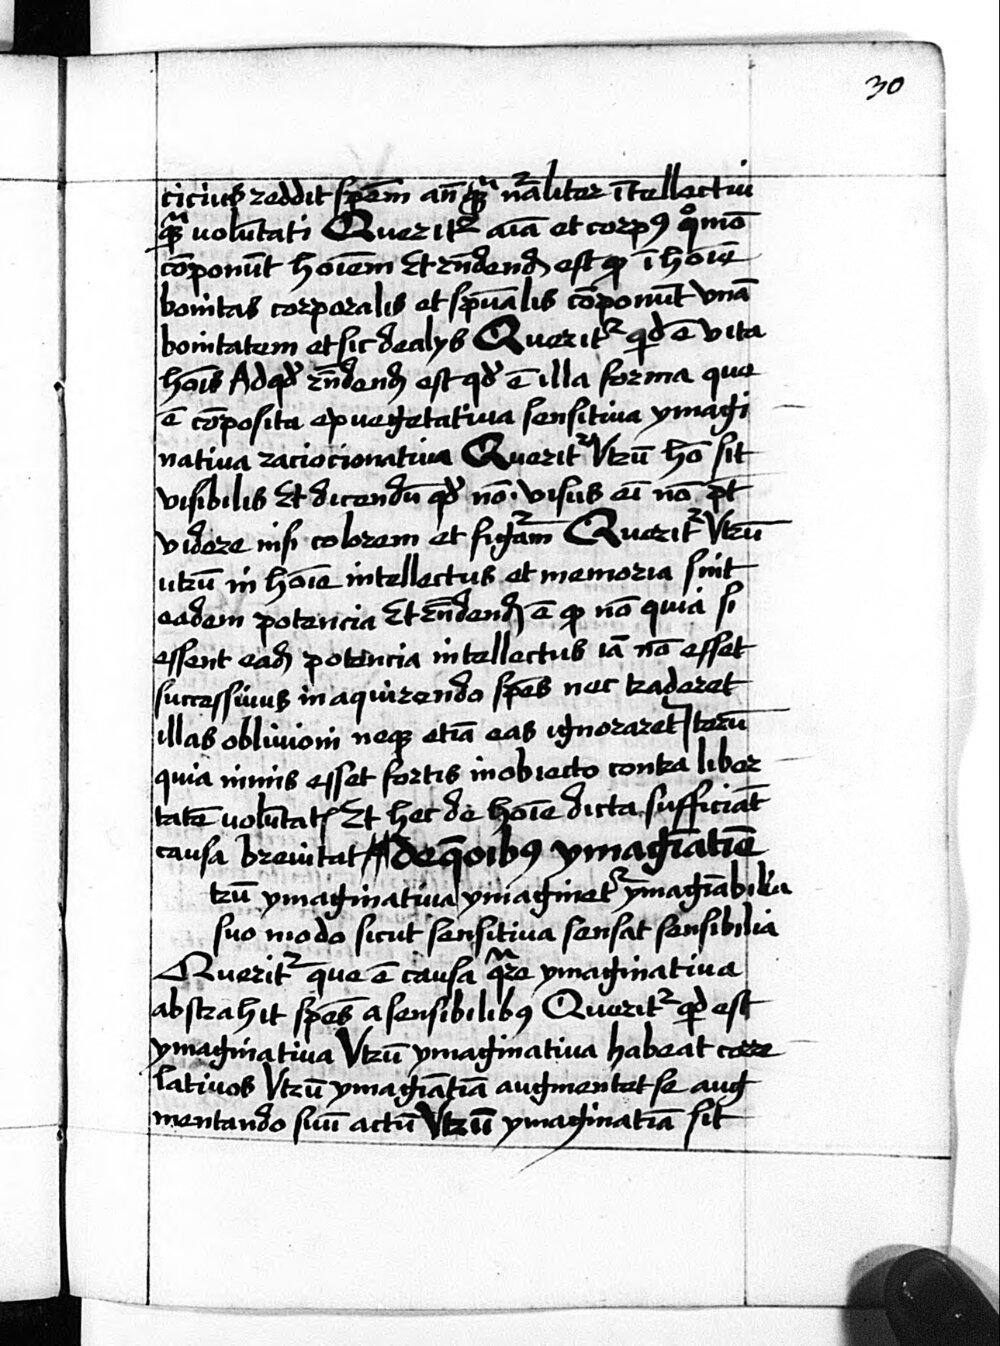 30
cicius reddit spēm an̄ qͣ nāliter ītellectiu
qͣ voluntati Querit᷑ aīa et corpꝰ qͦmō
cōponūt hoīem Et rn̄dend est ꝙ ī hoīe
bonitas corporalis et spūalis cōponūt vnā
bonitatem et sic de alijs Querit᷑ qd ē vita
hoīs Ad qd rn̄dend est qd ē illa forma que
ē cōposita ep vegetatiua sensitiua ymagi
natiua raciocionatiua Querit᷑ Vtrū hō sit
visibilis Et dicendū qd nō. visus eī nō pt̄
videre nisi colorem et figām Querit᷑ Vtrū
utrū in hoīe intellectus et memoria sint
eadem potencia Et rn̄dend ē ꝙ nō quia si
essent ead potencia intellectus iā nō esset
successiuus in aquirendo spēs nec traderet
illas obliuioni neqꝫ etiā eas ignoraret Iterū
quia nimis esset fortis in obiecto contra liber
tatē voluntatꝭ Et hec de hoīe dicta sufficiāt
causa breuitat de q̄oibꝰ ymagīatiē
trū ymaginatiua ymaginet᷑ ymagīabilia
suo modo sicut sensitiua sensat sensibilia
Querit᷑ que ē causa qͣre ymaginatiua
abstrahit spēs a sensibilibꝰ Querit᷑ qd est
ymaginatiua Vtrū ymaginatiua habeat corre
latiuos Vtrū ymagīatiā augmentet se aug
mentando suū actū Vtrū ymaginatiā sit